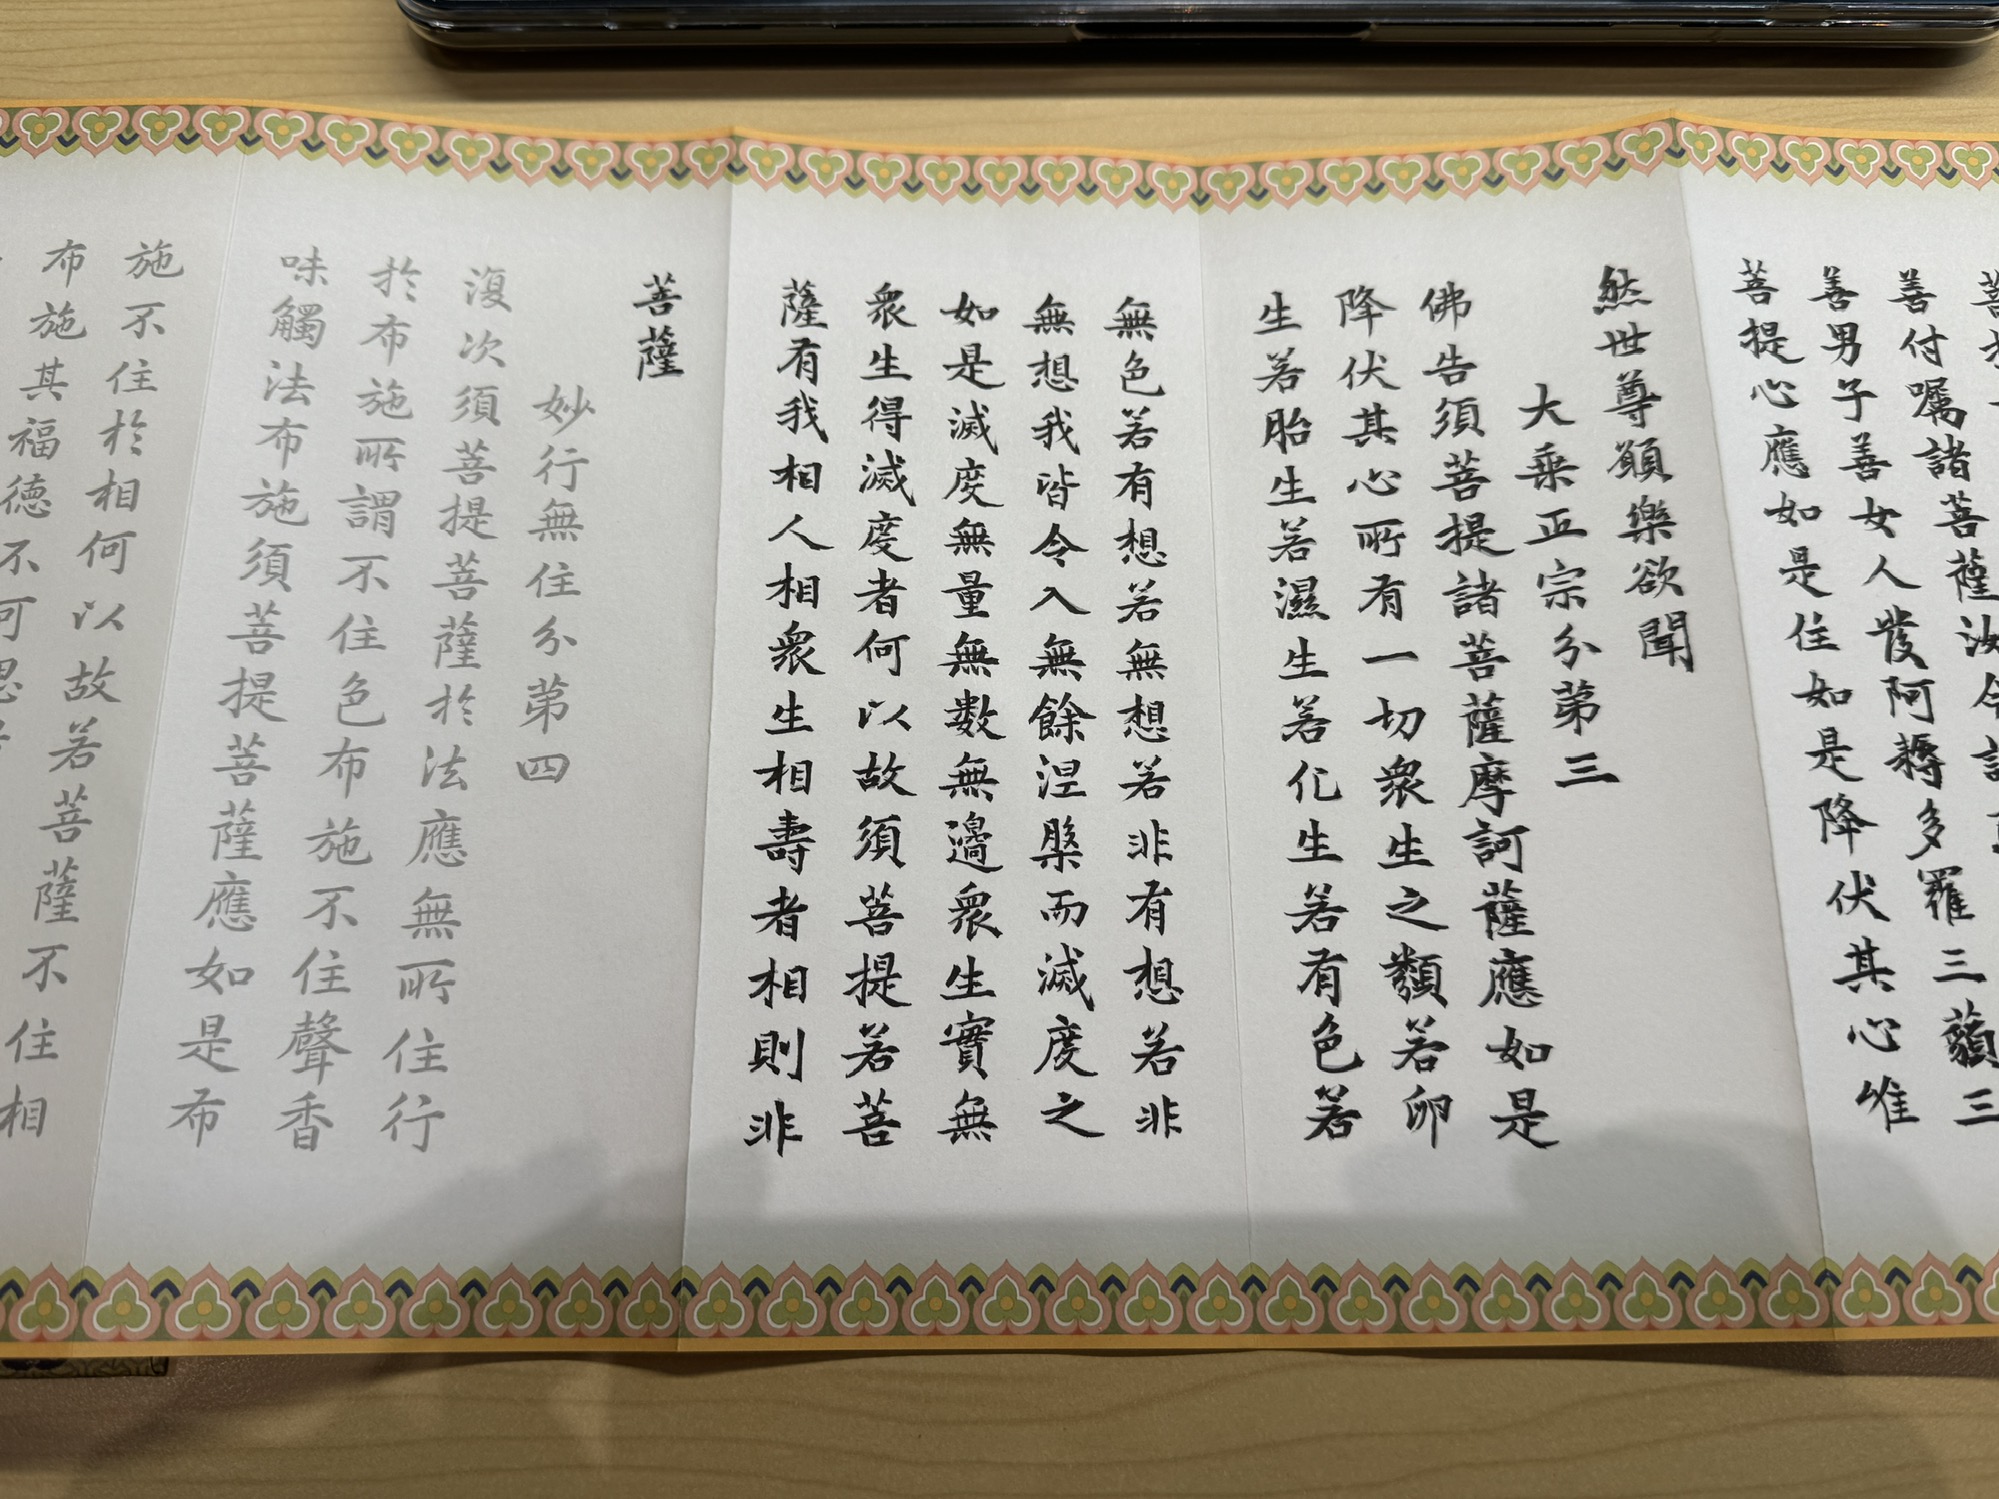 菩
善付囑諸菩薩汝今
多羅三藐三
善男子善女人發阿耨
菩提心應如是住如是降伏其心唯
然世尊願樂欲聞
大乘正宗分第三
佛告須菩提諸菩薩摩訶薩應如是
降伏其心所有一切衆生之類若卵
生若胎生若濕生若化生若有色若
無色若有想若無想若非有想若非
無想我皆令入無餘涅槃而滅度之
如是滅度無量無數無邊衆生實無
衆生得滅度者何以故須菩提若菩
薩有我相人相衆生相壽者相則非
菩薩
妙行無住分第四
復次須菩提菩薩於法應無所住行
於布施所謂不住色布施不住聲香
味觸法布施須菩提菩薩應如是布
施不住於相何以故若菩薩不住相
布施其福德不可思